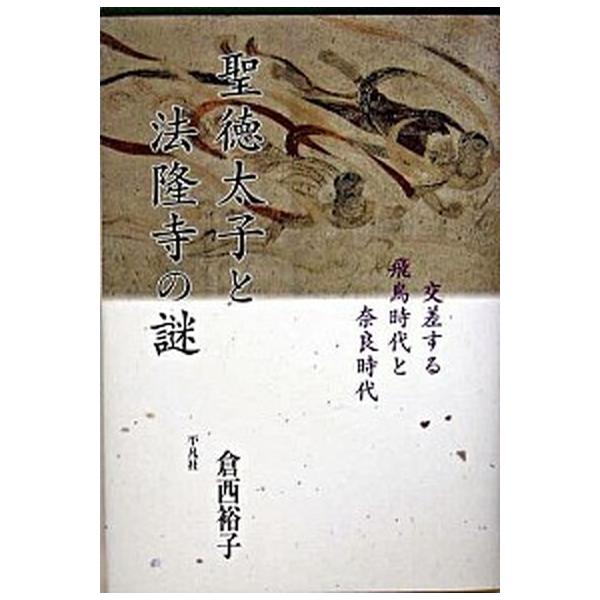 聖徳太子と
法隆寺の謎
交差する
飛鳥時代と
奈良時代
倉西裕子
平凡社